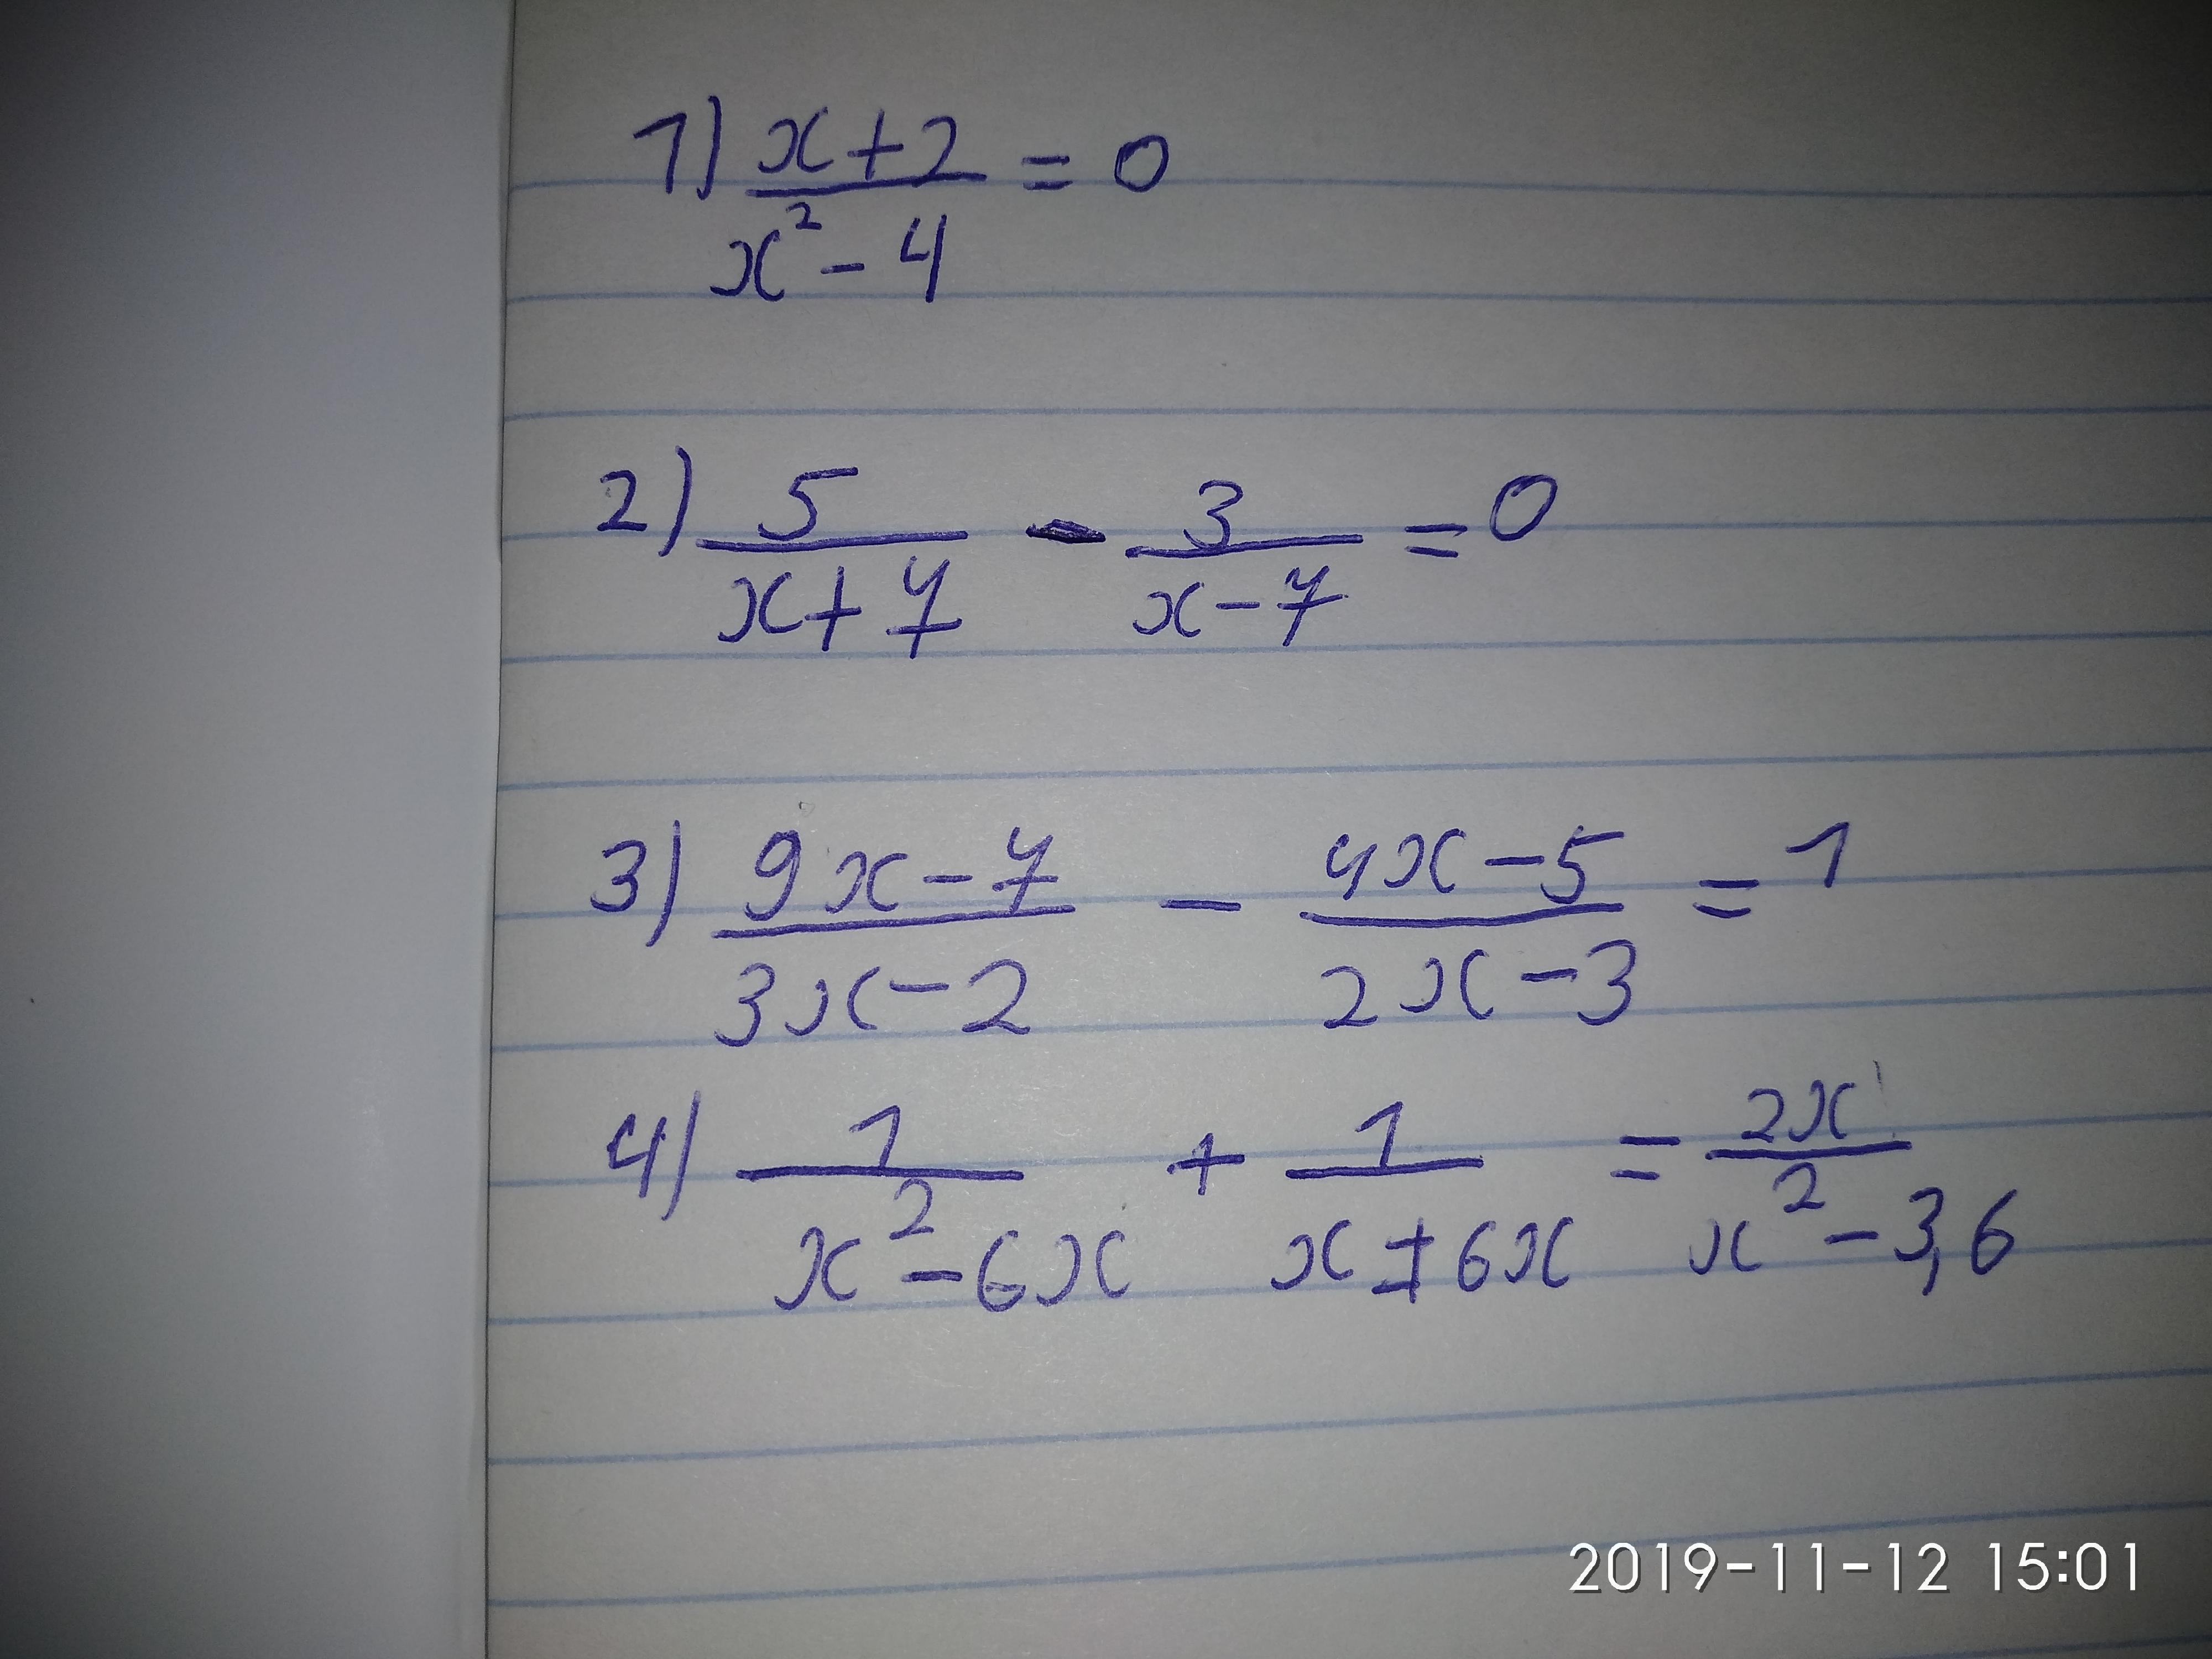 1) (x+2)/(x²-4) = 0
2) 5/(x+7) - 3/(x-7) = 0
3) (9x-7)/(3x-2) - (4x-5)/(2x-3) = 1
4) 1/(x²-6x) + 1/(x+6x) = 2x/(x²-3,6)
2019-11-12 15:01